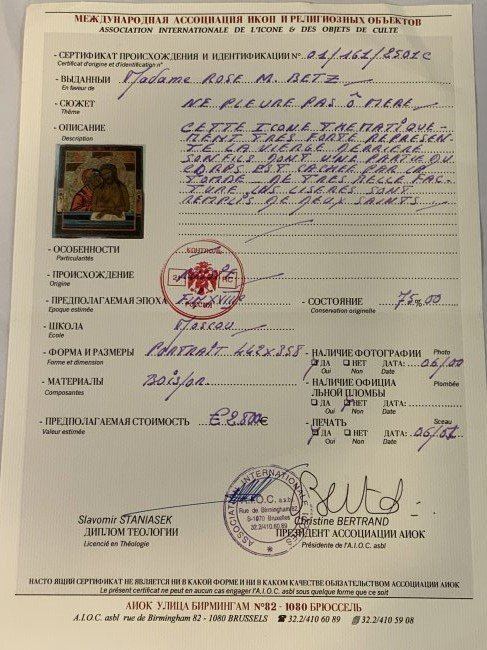 МЕЖДУНАРОДНАЯ АССОЦИАЦИЯ ИКОН И РЕЛИГИОЗНЫХ ОБЪЕКТОВ
ASSOCIATION INTERNATIONALE DE L'ICONE & DES OBJETS DE CULTE
- СЕРТИФИКАТ ПРОИСХОЖДЕНИЯ И ИДЕНТИФИКАЦИИ № 01/161/2501C
Certificat d'origine et d'identification n°
- ВЫДАННЫЙ Madame ROSE M. BETZ
En faveur de
- СЮЖЕТ NE PLEURE PAS Ô MERE
Thème
- ОПИСАНИЕ CETTE ICONE THEMATIQUE-
Description MENT TRES FORTE REPRESEN-
TE LA VIERGE DERRIERE
SON FILS DONT UNE PARTIE DU
CORPS EST CACHEE PAR LA
TOMBE DE TRES BELLE FAC-
TURE LES LISERES SONT
REMPLIS DE DEUX SAINTS
- ОСОБЕННОСТИ
Particularités
КОНТРОЛЬ
- ПРОИСХОЖДЕНИЕ
Origine
РОССИЯ
- ПРЕДПОЛАГАЕМАЯ ЭПОХА FIN XVIIIe - СОСТОЯНИЕ 75%00
Epoque estimée Conservation originelle
- ШКОЛА Moscou
Ecole
- ФОРМА И РАЗМЕРЫ PORTRAIT 442x358 - НАЛИЧИЕ ФОТОГРАФИИ Photo
Forme et dimension ДА НЕТ ДАТА: 06/00
Oui Non Date
- МАТЕРИАЛЫ BOIS/OR. - НАЛИЧИЕ ОФИЦИА Plombée
Composantes ЛЬНОЙ ПЛОМБЫ
ДА НЕТ ДАТА:
Oui Non Date
- ПРЕДПОЛАГАЕМАЯ СТОИМОСТЬ - ПЕЧАТЬ Sceau
Valeur estimée ДА НЕТ ДАТА:
Oui Non Date
ASSOCIATION INTERNATIONALE
A.I.O.C. a.s.b.l
Rue de Birmingham 82
B-1070 Bruxelles
32.2/410.60.89
Slavomir STANIASEK Christine BERTRAND
ДИПЛОМ ТЕОЛОГИИ ПРЕЗИДЕНТ АССОЦИАЦИИ АИОК
Licencié en Théologie Présidente de l'A.I.O.C. asbl
НАСТО ЯЩИЙ СЕРТИФИКАТ НЕ ЯВЛЯЕТСЯ НИ В КАКОЙ ФОРМЕ И НИ В КАКОМ КАЧЕСТВЕ ОБЯЗАТЕЛЬСТВОМ АССОЦИАЦИИ АИОК
Le présent certificat ne peut en aucun cas engager l'A.I.O.C. asbl sous quelque forme que ce soit
АИОК УЛИЦА БИРМИНГАМ №82 - 1080 БРЮССЕЛЬ
A.I.O.C. asbl rue de Birmingham 82 - 1080 BRUSSELS ☎ 32.2/410 60 89 32.2/410 59 08